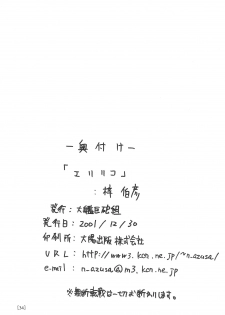 ー奥付けー
「エリリコ」
：梓 伯彦
発行：大艦巨砲組
発行日：2001/12/30
印刷所：大陽出版株式会社
URL：http://www3.kcn.ne.jp/~n_azusa/
e.mail：n_azusa@m3.kcn.ne.jp
※無断転載は一切お断わりします。